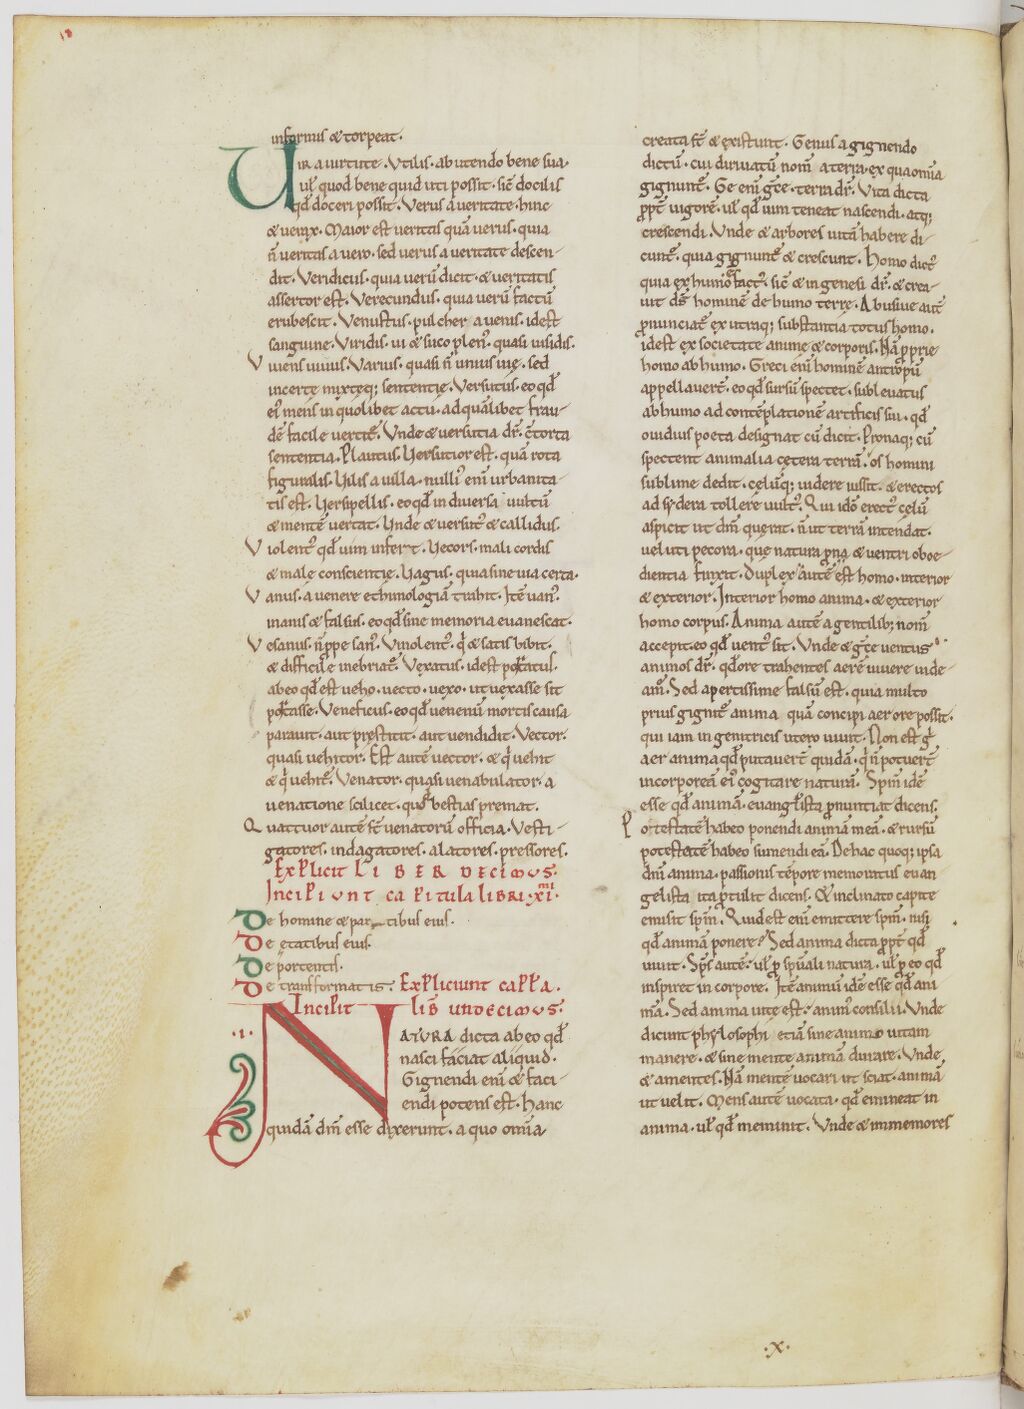 infirmus & torpeat.
Vir a uirtute. Vtilis. ab utendo bene sua.
uł quod bene quid uti possit. sic̄ docilis
qđ doceri possit. Verus a ueritate. hinc
& uerax. Maior est ueritas quā uerus. quia
n̄ ueritas a uero. sed uerus a ueritate descen-
dit. Veridicus. quia uerū dicit. & ueritatis
assertor est. Verecundus. quia uerū factū
erubescit. Venustus. pulcher a uenis. idest
sanguine. Viridis. ui & suco plen᾽. quasi ui uiridis.
Viuens uiuus. Varius. quasi n̄ unius uię. sed
incertę mixtęq; sententię. Versutus. eo qđ
ei᾽ mens in quolibet actu. ad quālibet frau-
dē facile uertit᾽. Vnde & uersutia dr̄. c̄torta
sententia. Plautus. Versutior est. quā rota
figuralis. Vilis a uilla. nulli᾽ enī urbanita-
tis est. Versipellis. eo qđ in diuersa uultū
& mentē uertat. Vnde & uersut᾽ & callidus.
Violent᾽ qđ uim infert. Vecors. mali cordis
& male conscientię. Vagus. quia sine uia certa.
Vanus. a uenere ethimologiā trahit. Itē uan᾽.
inanis & falsus. eo qđ sine memoria euanescat.
Vesanus. n̄ ꝓpe san᾽. Vinolent᾽. q̇ & satis bibit.
& difficile inebriat᾽. Vexatus. idest portatus.
ab eo qđ est ueho. uecto. uexo. ut uexasse sit
portasse. Veneficus. eo qđ uenenū mortis causa
parauit. aut prestitit. aut uendidit. Vector.
quasi uehitor. Est autē uector. & q̇ uehit
& q̇ uehit᾽. Venator. quasi uenabulator. a
uenatione scilicet. quo bestias premat.
Quattuor autē st̄ uenatorū officia. Vesti-
gatores. indagatores. alatores. pressores.
Explicit LIBER DECIMUS.
Incipiunt capitula libri. xi.mi
De homine & partibus eius.
De etatibus eius.
De portentis.
De transformatis. Expliciunt capła.
Incipit lib̄ undecimus.
.I. NATURA dicta ab eo qđ
nasci faciat aliquid.
Gignendi enī & faci-
endi potens est. Hanc
quidā dm̄ esse dixerunt. a quo omīa
creata st̄ & existunt. Genus a gignendo
dictū. cui diriuatū nom̄ a terra. ex qua omīa
gignunt᾽. Ge enī gc̄e. terra dr̄. Vita dicta
ꝓpt᾽ uigorē. uł qđ uim teneat nascendi. atq;
crescendi. Vnde & arbores uitā habere di-
cunt᾽. quia gignunt᾽ & crescunt. Homo dict᾽
quia ex humo fact᾽. sic̄ & in genesi dr̄. & crea-
uit ds̄ hominē de humo terrę. Abusiue aut̄
ꝓnunciat᾽ ex utraq; substantia totus homo.
idest ex societate anime & corporis. Nā ꝓprie
homo ab humo. Greci enī hominē antropū
appellauert̄. eo qđ sursū spectet. subleuatus
ab humo ad contēplationē artificis sui. qđ
ouidius poeta designat cū dicit. Pronaq; cū
spectent animalia cetera terrā. os homini
sublime dedit. cęlūq; uidere iussit. & erectos
ad sydera tollere uult᾽. Qui idō erect᾽ cęlū
aspicit ut dm̄ querat. n̄ ut terrā intendat.
uel uti pecora. quę natura ꝓna & uentri oboe-
dientia finxit. Duplex autē est homo. interior
& exterior. Interior homo anima. & exterior
homo corpus. Anima autē a gentilib; nom̄
accepit. eo qđ uent᾽ sit. Vnde & gc̄e uentus
animos dr̄. qđ ore trahentes aerē uiuere uide-
am᾽. Sed apertissime falsū est. quia multo
prius gignit᾽ anima quā concipi aer ore possit.
qui iam in genitricis utero uiuit. Non est g̊
aer anima qđ putauert̄ quidā. q̇ n̄ potuert̄
incorporeā ei᾽ cogitare naturā. Spm̄ idē
esse qđ animā. euangłista ꝓnuntiat dicens.
Potestatē habeo ponendi animā meā. & rursū
potestatē habeo sumendi eā. De hac quoq; ipsa
dm̄ anima. passionis tēpore memoratus euan
gelista ita ꝓtulit dicens. & inclinato capite
emisit spm̄. Quid est enī emittere spm̄. nisi
qđ animā ponere? Sed anima dicta ꝓpt᾽ qđ
uiuit. Sps̄ autē. uł ꝓ spuali natura. uł ꝓ eo qđ
inspiret in corpore. Itē animū idē esse qđ ani
mā. Sed anima uitę est. anim᾽ consilii. Vnde
dicunt phylosophi etiā sine animo uitam
manere. & sine mente animā durare. Vnde
& amentes. Nā mentē uocari ut sciat. animā
ut uelit. Mens autē uocata. qđ emineat in
anima. uł qđ meminit. Vnde & immemores
.x.